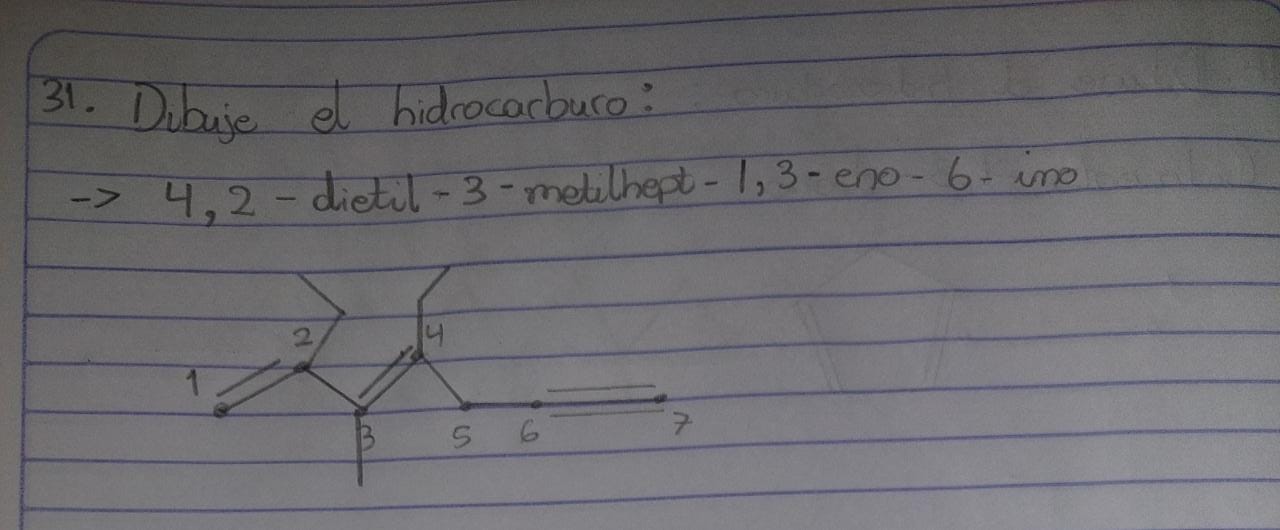 31. Dibuje el hidrocarburo:
-> 4,2-dietil-3-metilhept-1,3-eno-6-ino
1
2
3
4
5
6
7